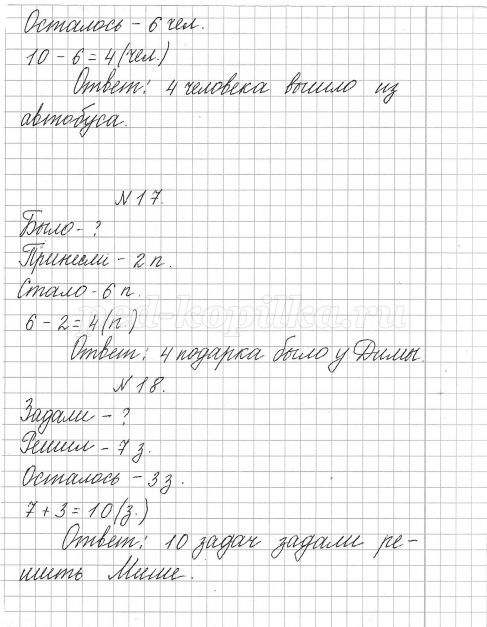 Осталось - 6 чел.
10 - 6 = 4 (чел.)
Ответ: 4 человека вышло из
автобуса.
N 17.
Было - ?
Принесли - 2 п.
Стало - 6 п.
6 - 2 = 4 (п.)
Ответ: 4 подарка было у Димы.
N 18.
Задали - ?
Решил - 7 з.
Осталось - 3 з.
7 + 3 = 10 (з.)
Ответ: 10 задач задали ре-
шить Мише.